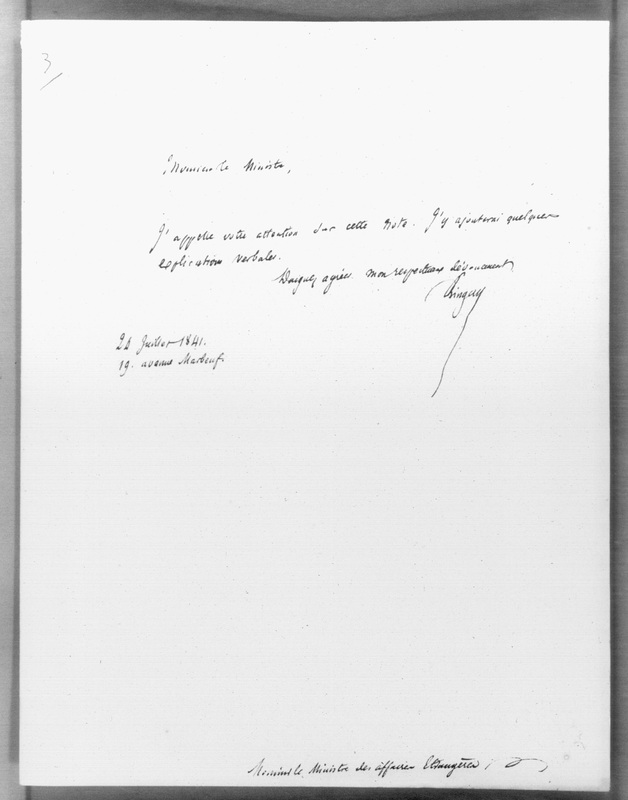 3
Monsieur le Ministre,
J'appelle votre attention sur cette note. J'y ajouterai quelques
explications verbales.
Daignez agréer mon respectueux dévouement
Juillet 1841.
19. avenue Marbeuf.
Monsieur le Ministre des affaires Etrangères